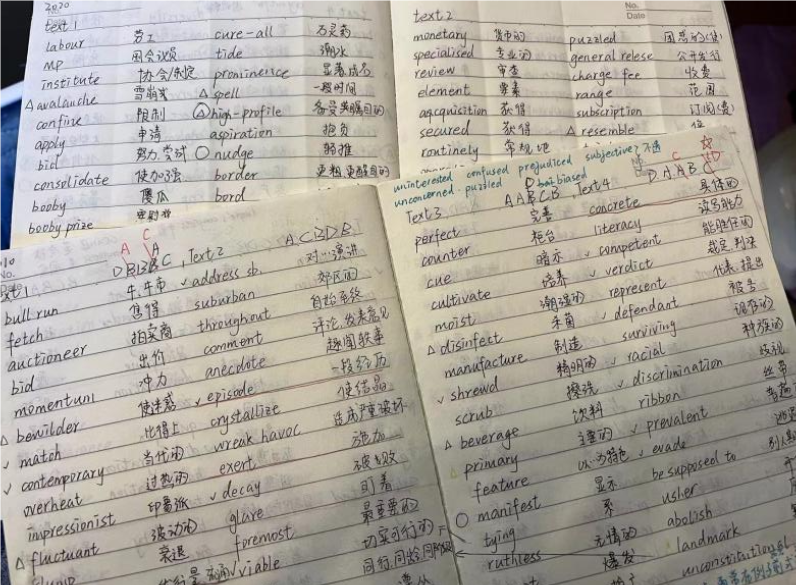 2020
text 1
labour 劳工 cure-all 万灵药
MP 国会议员 tide 潮水
institute 协会/制定 prominence 显著,成名
△ avalanche 雪崩 △ spell 一段时间
confine 限制 high-profile 备受瞩目的
apply 申请 aspiration 抱负
bid 努力,尝试 nudge 轻推
consolidate 使加强 border
booby 傻瓜 bord
booby prize
text 2
No.
Date
monetary 货币的 puzzled
specialised 专业的 general relese 公开发行
review 审查 charge fee 收费
element 要素 range 范围
aqcquisition 获得 subscription 订阅(费)
secured 获得 △ resemble
routinely 常规地
uninterested confused prejudiced subjective?
unconcerned puzzled biased
Text 3 AABCB, Text 4 D A AB
C
D
perfect 完善 concrete 具体的
counter 柜台 literacy 读写能力
cue 暗示 ✓ competent 能胜任的
cultivate 培养 ✓ verdict 裁定,判决
moist 潮湿的 represent 代表,提出
△ disinfest 杀菌 ✓ defendant 被告
manufacture 制造 surviving
✓ shrewd 精明的 ✓ racial 种族的
scrub 擦洗 ✓ discrimination 歧视
△ beverage 饮料 ribbon 丝带
primary 主要的 ✓ prevalent 普遍
feature 以…为特色 ✓ evade
manifest 显示 be supposed to
tying 系 usher
ruthless 无情的 abolish
爆发 landmark
unconstitutional
No.
A C A
DBBBC, Text 2 ACBDB
bull run 牛市 ✓ address sb. 对…演讲
fetch 售得 suburban 郊区的
auctioneer 拍卖商 throughout 自始至终
bid 出价 comment 评论,发表意见
momentum 冲力 anecdote 趣闻轶事
△ bewilder 使迷惑 ✓ episode 一段经历
✓ match 比得上 crystallize 使结晶
✓ contemporary 当代的 wreak havoc 造成严重破坏
overheat 过热的 exert 施加
impressionist 印象派 ✓ decay 破败
△ fluctuant 波动的 glare 盯着
衰退 foremost 最重要的
viable 切实可行的